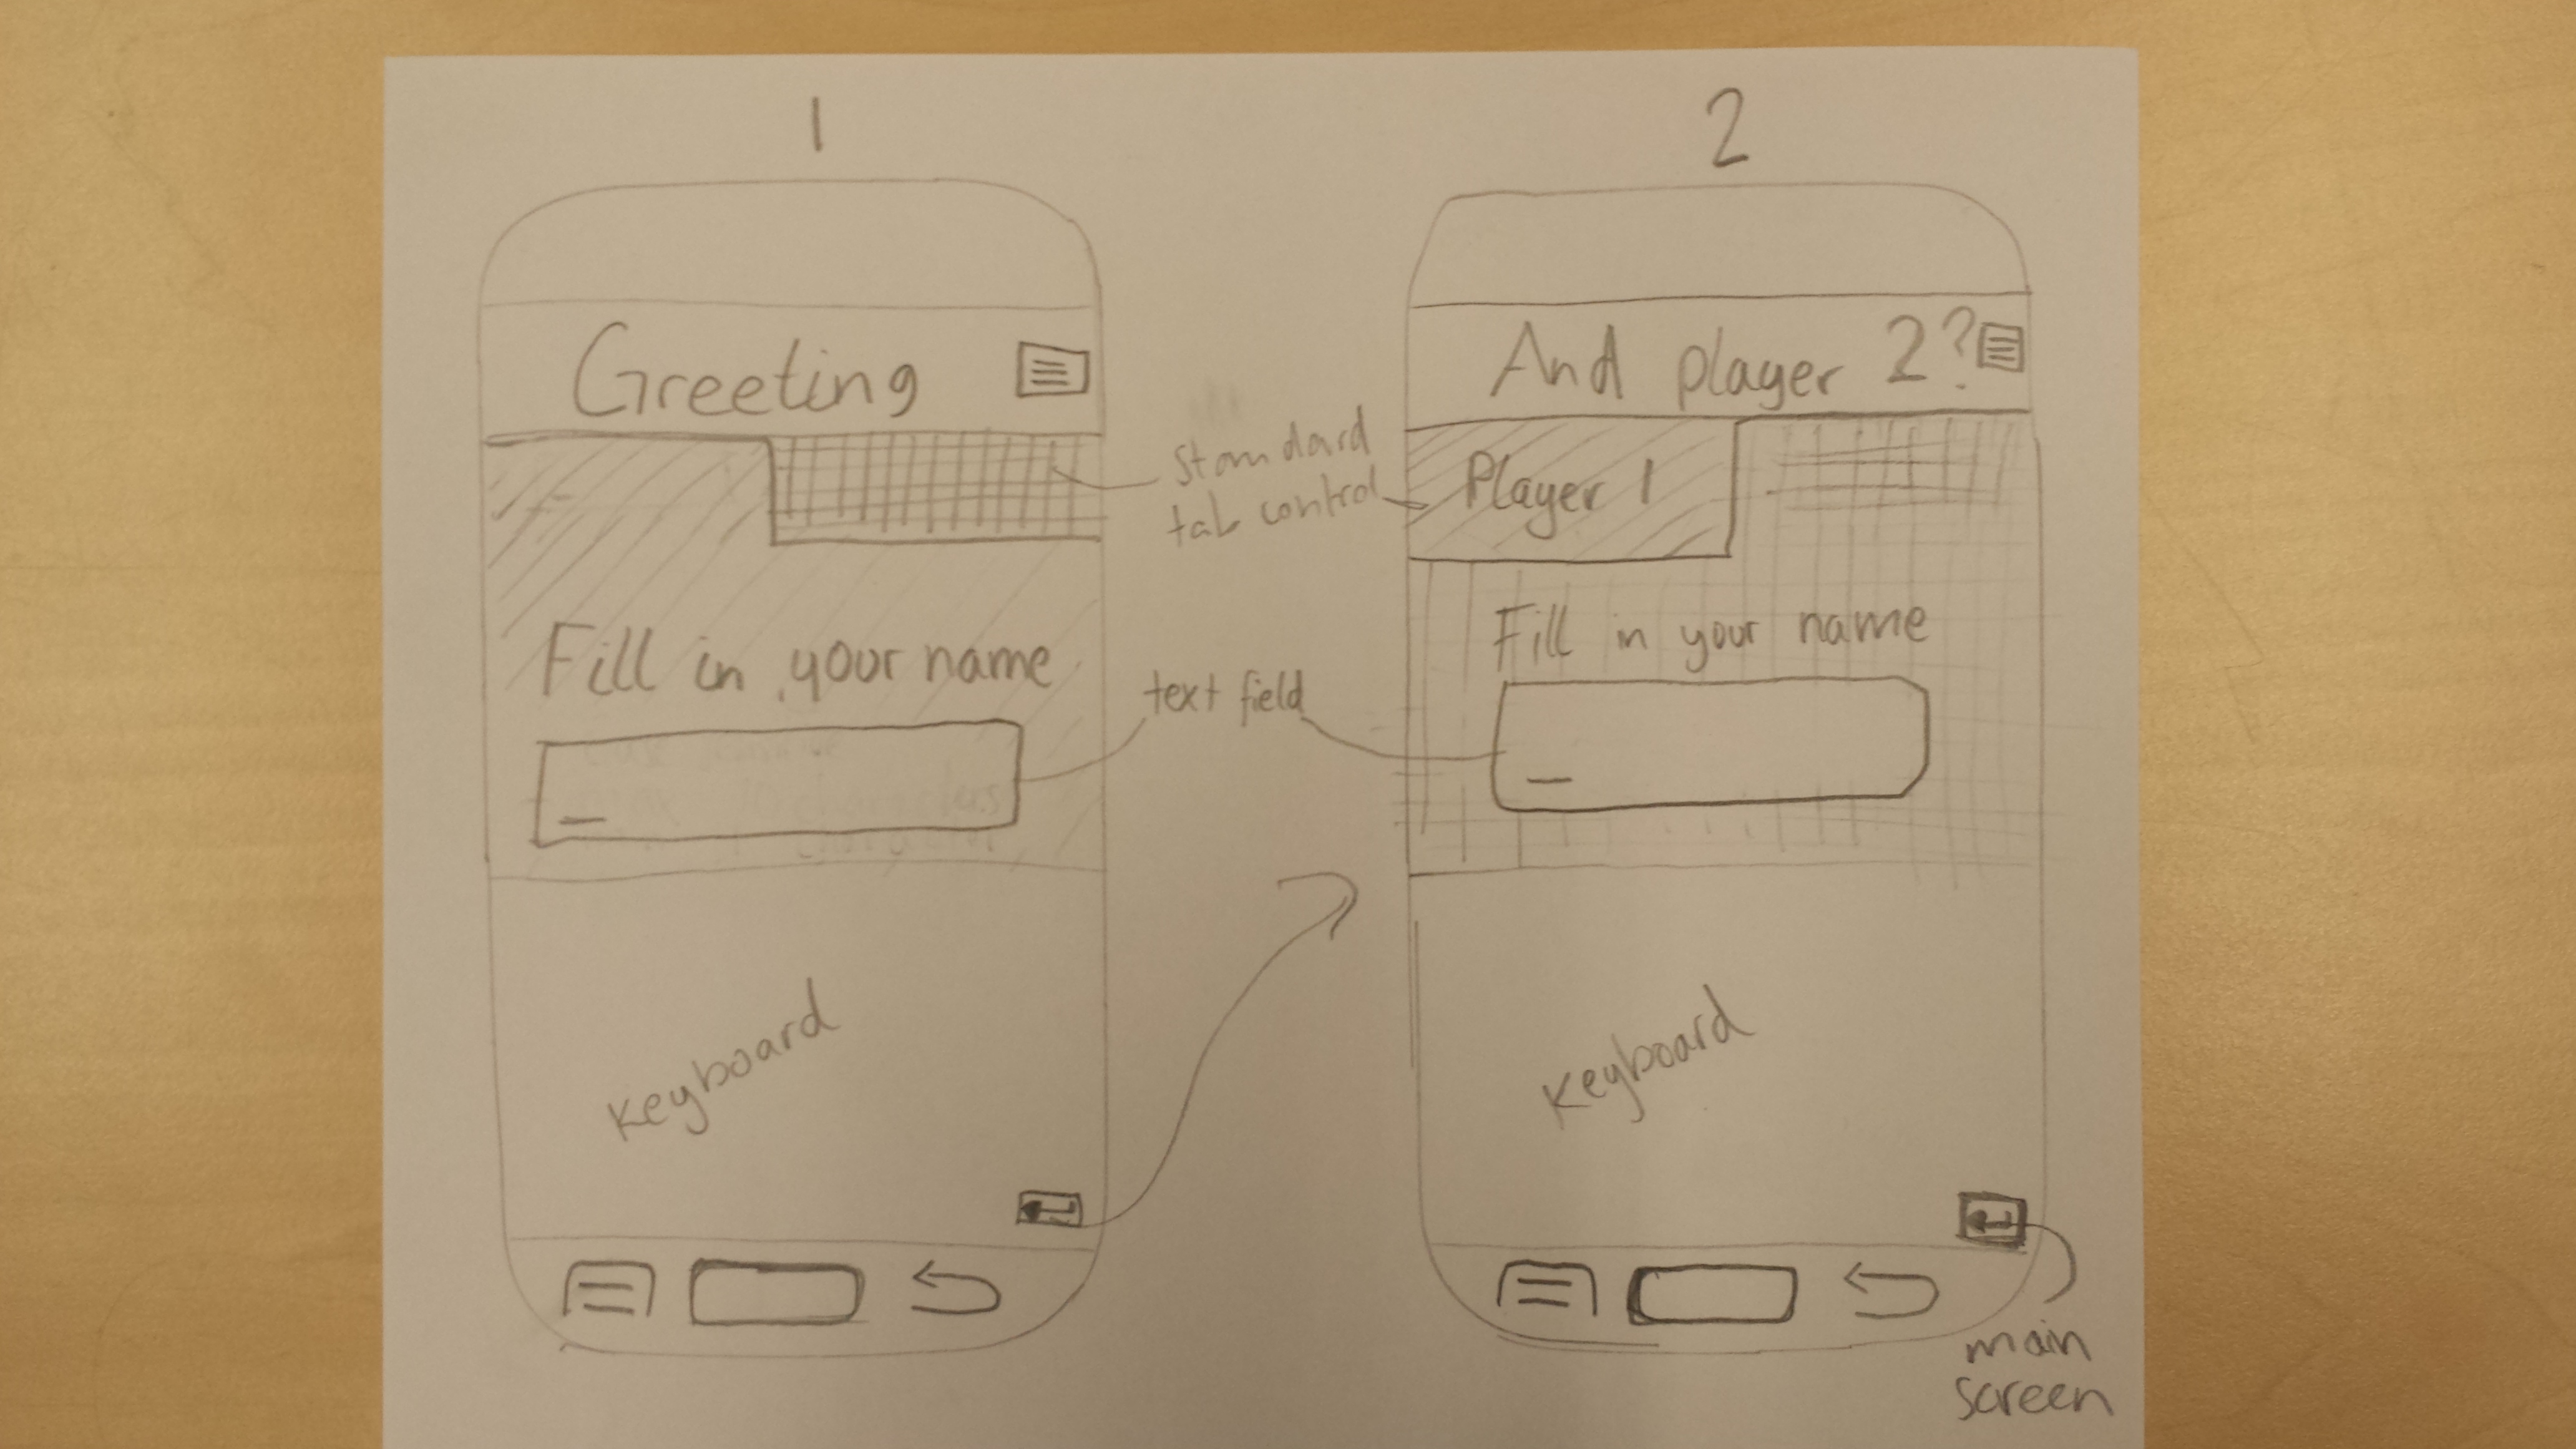 1
Greeting
Fill in your name
Keyboard
standard
tab control
text field
2
And player 2?
Player 1
Fill in your name
Keyboard
main
screen